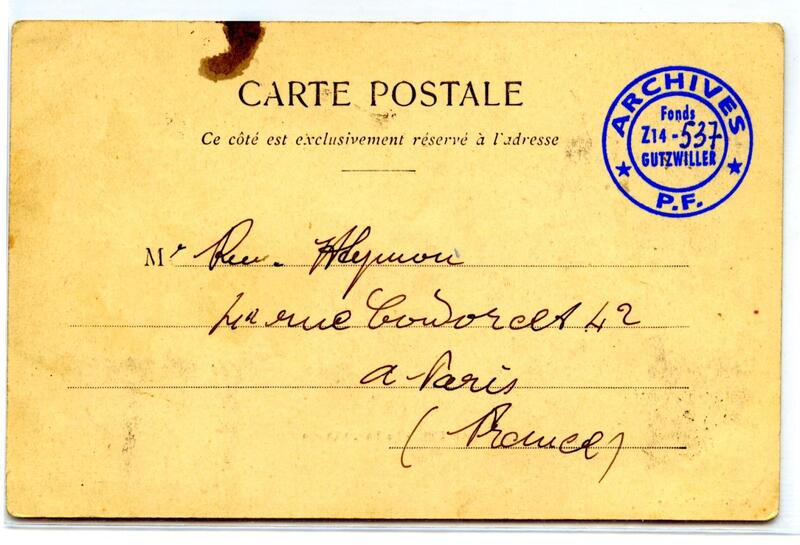 CARTE POSTALE
Ce côté est exclusivement réservé à l'adresse
ARCHIVES
Fonds
Z14 - 537
GUTZWILLER
P.F.
Mr
rue 42
a Paris
(France)